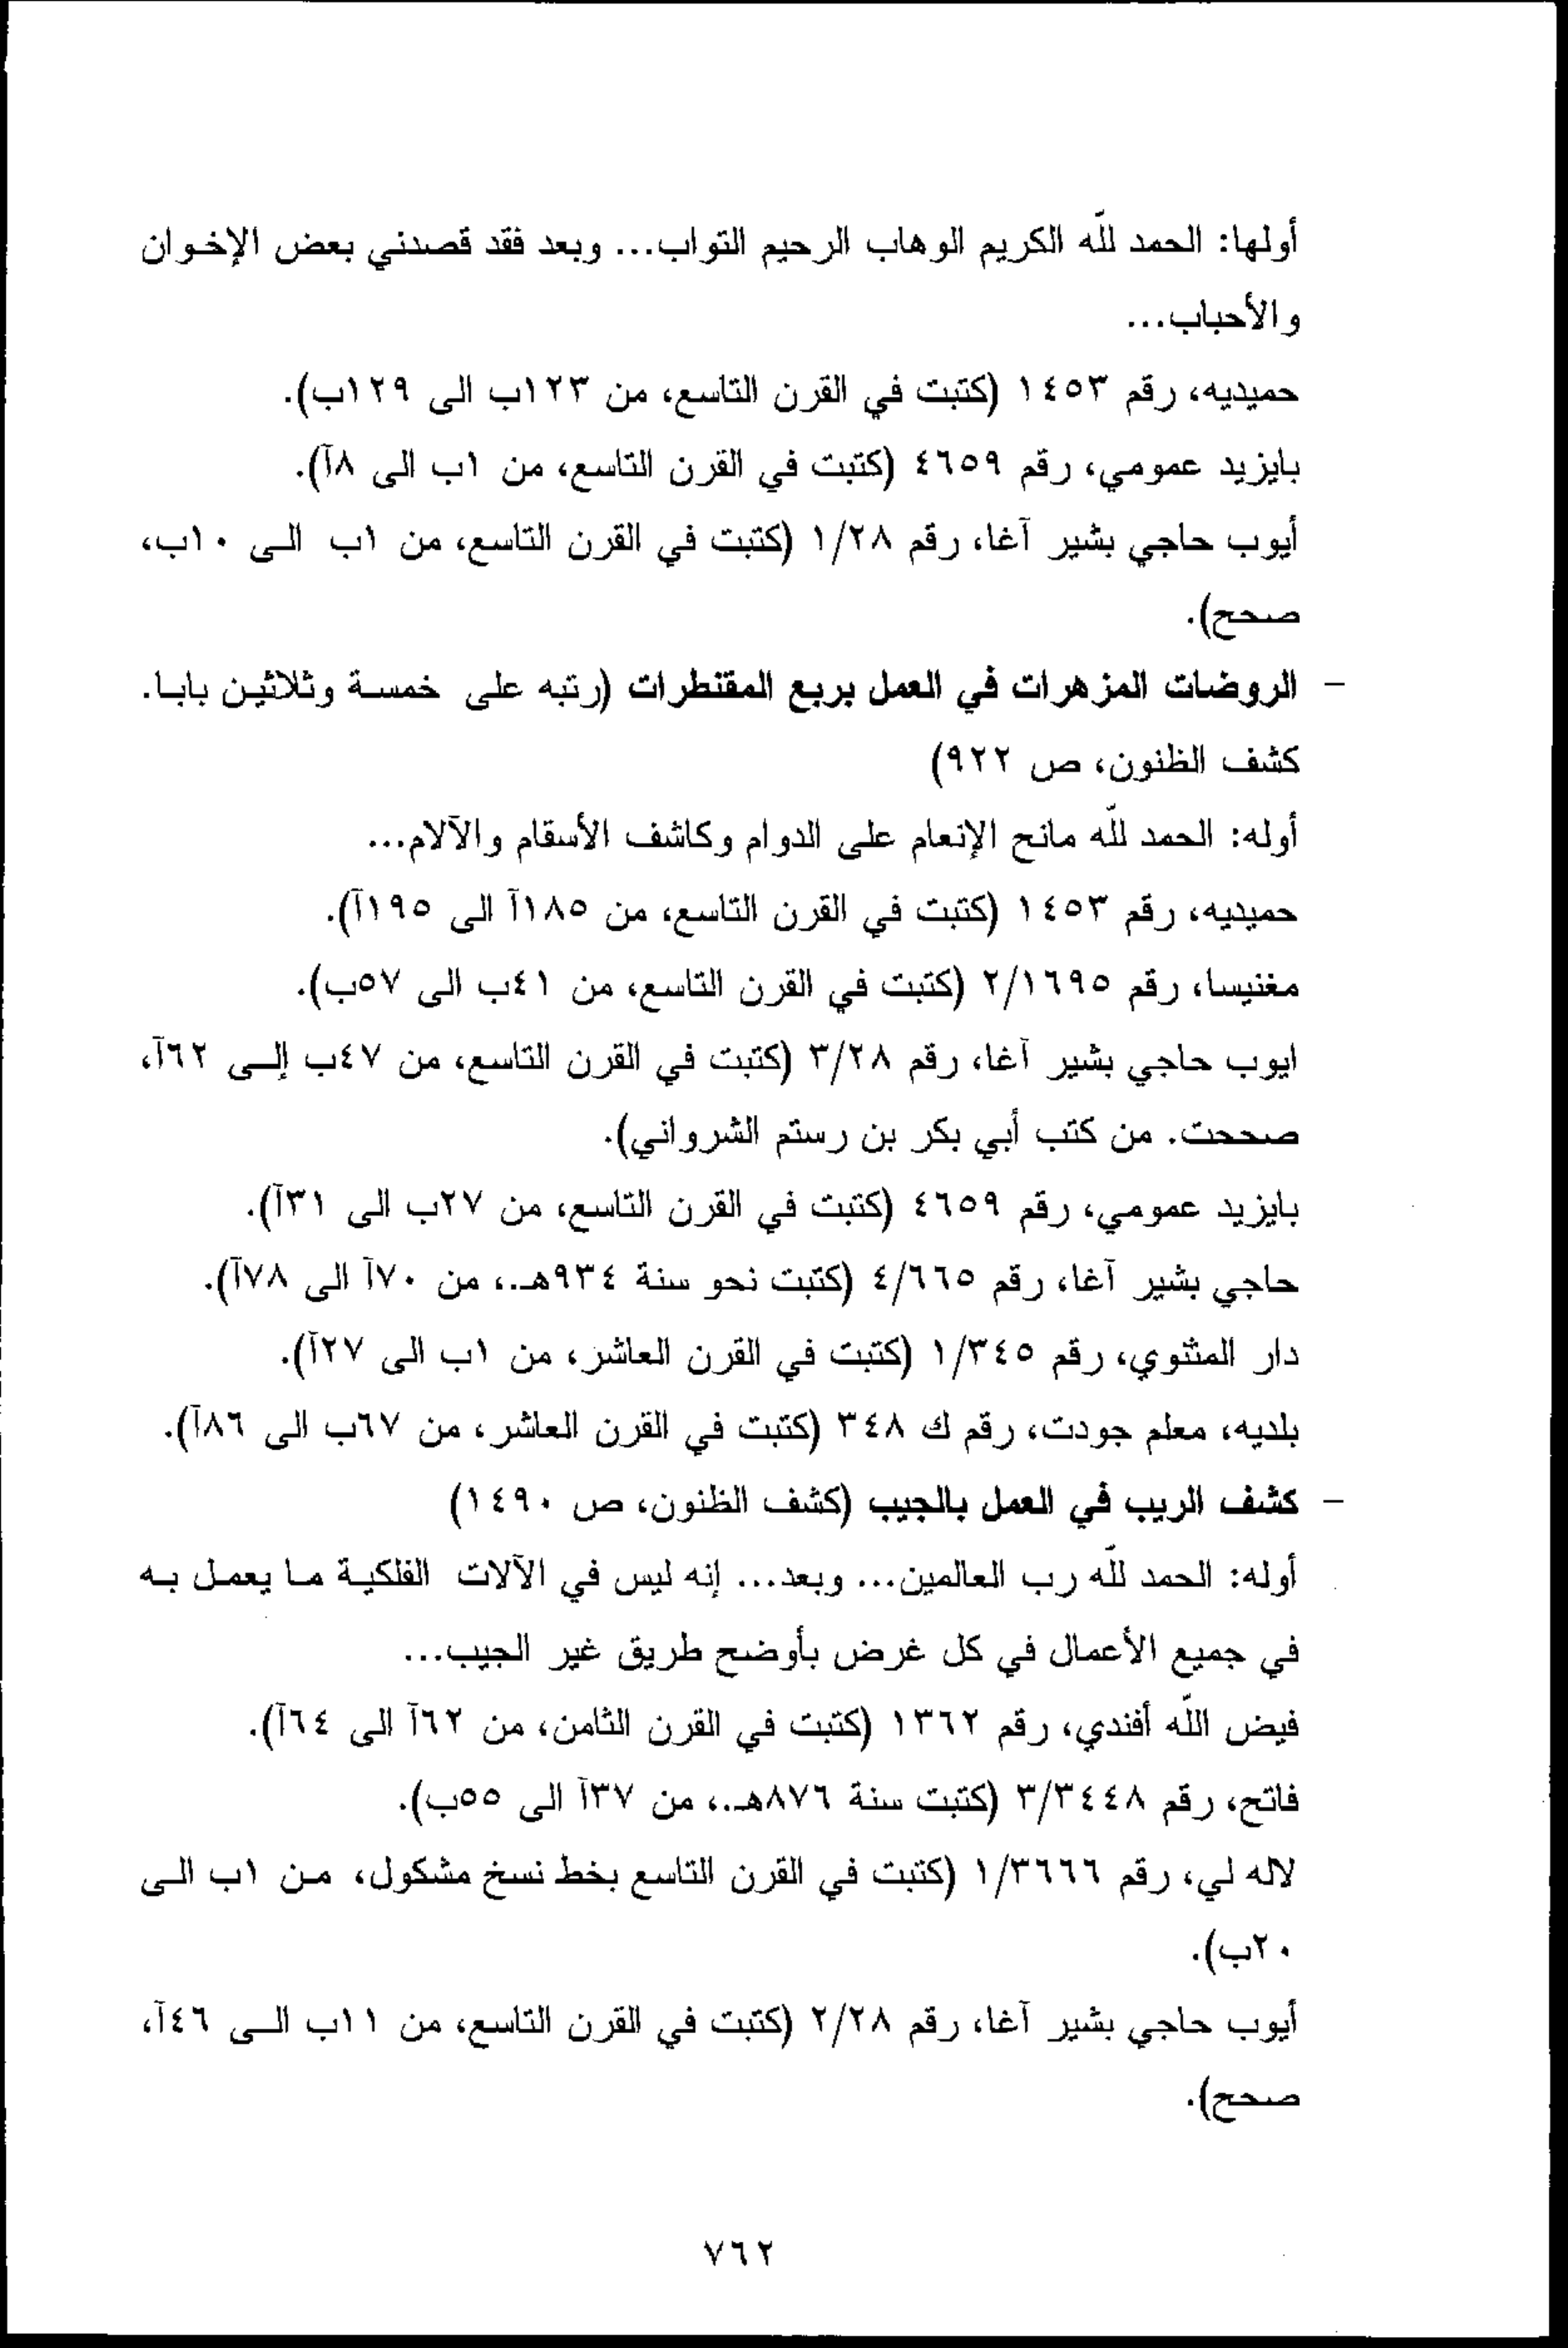 أولها: الحمد لله الكريم الوهاب الرحيم التواب... وبعد فقد قصدني بعض الإخوان
والأحباب...
حميديه، رقم ١٤٥٣ (كتبت في القرن التاسع، من ١٢٣ب الى ١٢٩ب).
بايزيد عمومي، رقم ٤٦٥٩ (كتبت في القرن التاسع، من ١ب الى ٨آ).
أيوب حاجي بشير آغا، رقم ١/٢٨ (كتبت في القرن التاسع، من ١ب الى ١٠ب،
صحح).
- الروضات المزهرات في العمل بربع المقنطرات (رتبه على خمسة وثلاثين بابا.
كشف الظنون، ص ٩٢٢)
أوله: الحمد لله مانح الإنعام على الدوام وكاشف الأسقام والآلام...
حميديه، رقم ١٤٥٣ (كتبت في القرن التاسع، من ١٨٥آ الى ١٩٥آ).
مغنيسا، رقم ٢/١٦٩٥ (كتبت في القرن التاسع، من ٤١ب الى ٥٧ب).
ايوب حاجي بشير آغا، رقم ٣/٢٨ (كتبت في القرن التاسع، من ٤٧ب إلى ٦٢آ،
صححت. من كتب أبي بكر بن رستم الشرواني).
بايزيد عمومي، رقم ٤٦٥٩ (كتبت في القرن التاسع، من ٢٧ب الى ٣١آ).
حاجي بشير آغا، رقم ٤/٦٦٥ (كتبت نحو سنة ٩٣٤هـ..، من ٧٠آ الى ٧٨آ).
دار المثنوي، رقم ١/٣٤٥ (كتبت في القرن العاشر، من ١ب الى ٢٧آ).
بلديه، معلم جودت، رقم ك ٣٤٨ (كتبت في القرن العاشر، من ٦٧ب الى ٨٦آ).
- كشف الريب في العمل بالجيب (كشف الظنون، ص ١٤٩٠)
أوله: الحمد لله رب العالمين... وبعد... إنه ليس في الآلات الفلكية ما يعمل به
في جميع الأعمال في كل غرض بأوضح طريق غير الجيب...
فيض الله أفندي، رقم ١٣٦٢ (كتبت في القرن الثامن، من ٦٢آ الى ٦٤آ).
فاتح، رقم ٣/٣٤٤٨ (كتبت سنة ٨٧٦هـ..، من ٣٧آ الى ٥٥ب).
لاله لي، رقم ١/٣٦٦٦ (كتبت في القرن التاسع بخط نسخ مشكول، من ١ب الى
٢٠ب).
أيوب حاجي بشير آغا، رقم ٢/٢٨ (كتبت في القرن التاسع، من ١١ب الى ٤٦آ،
صحح).
٧٦٢